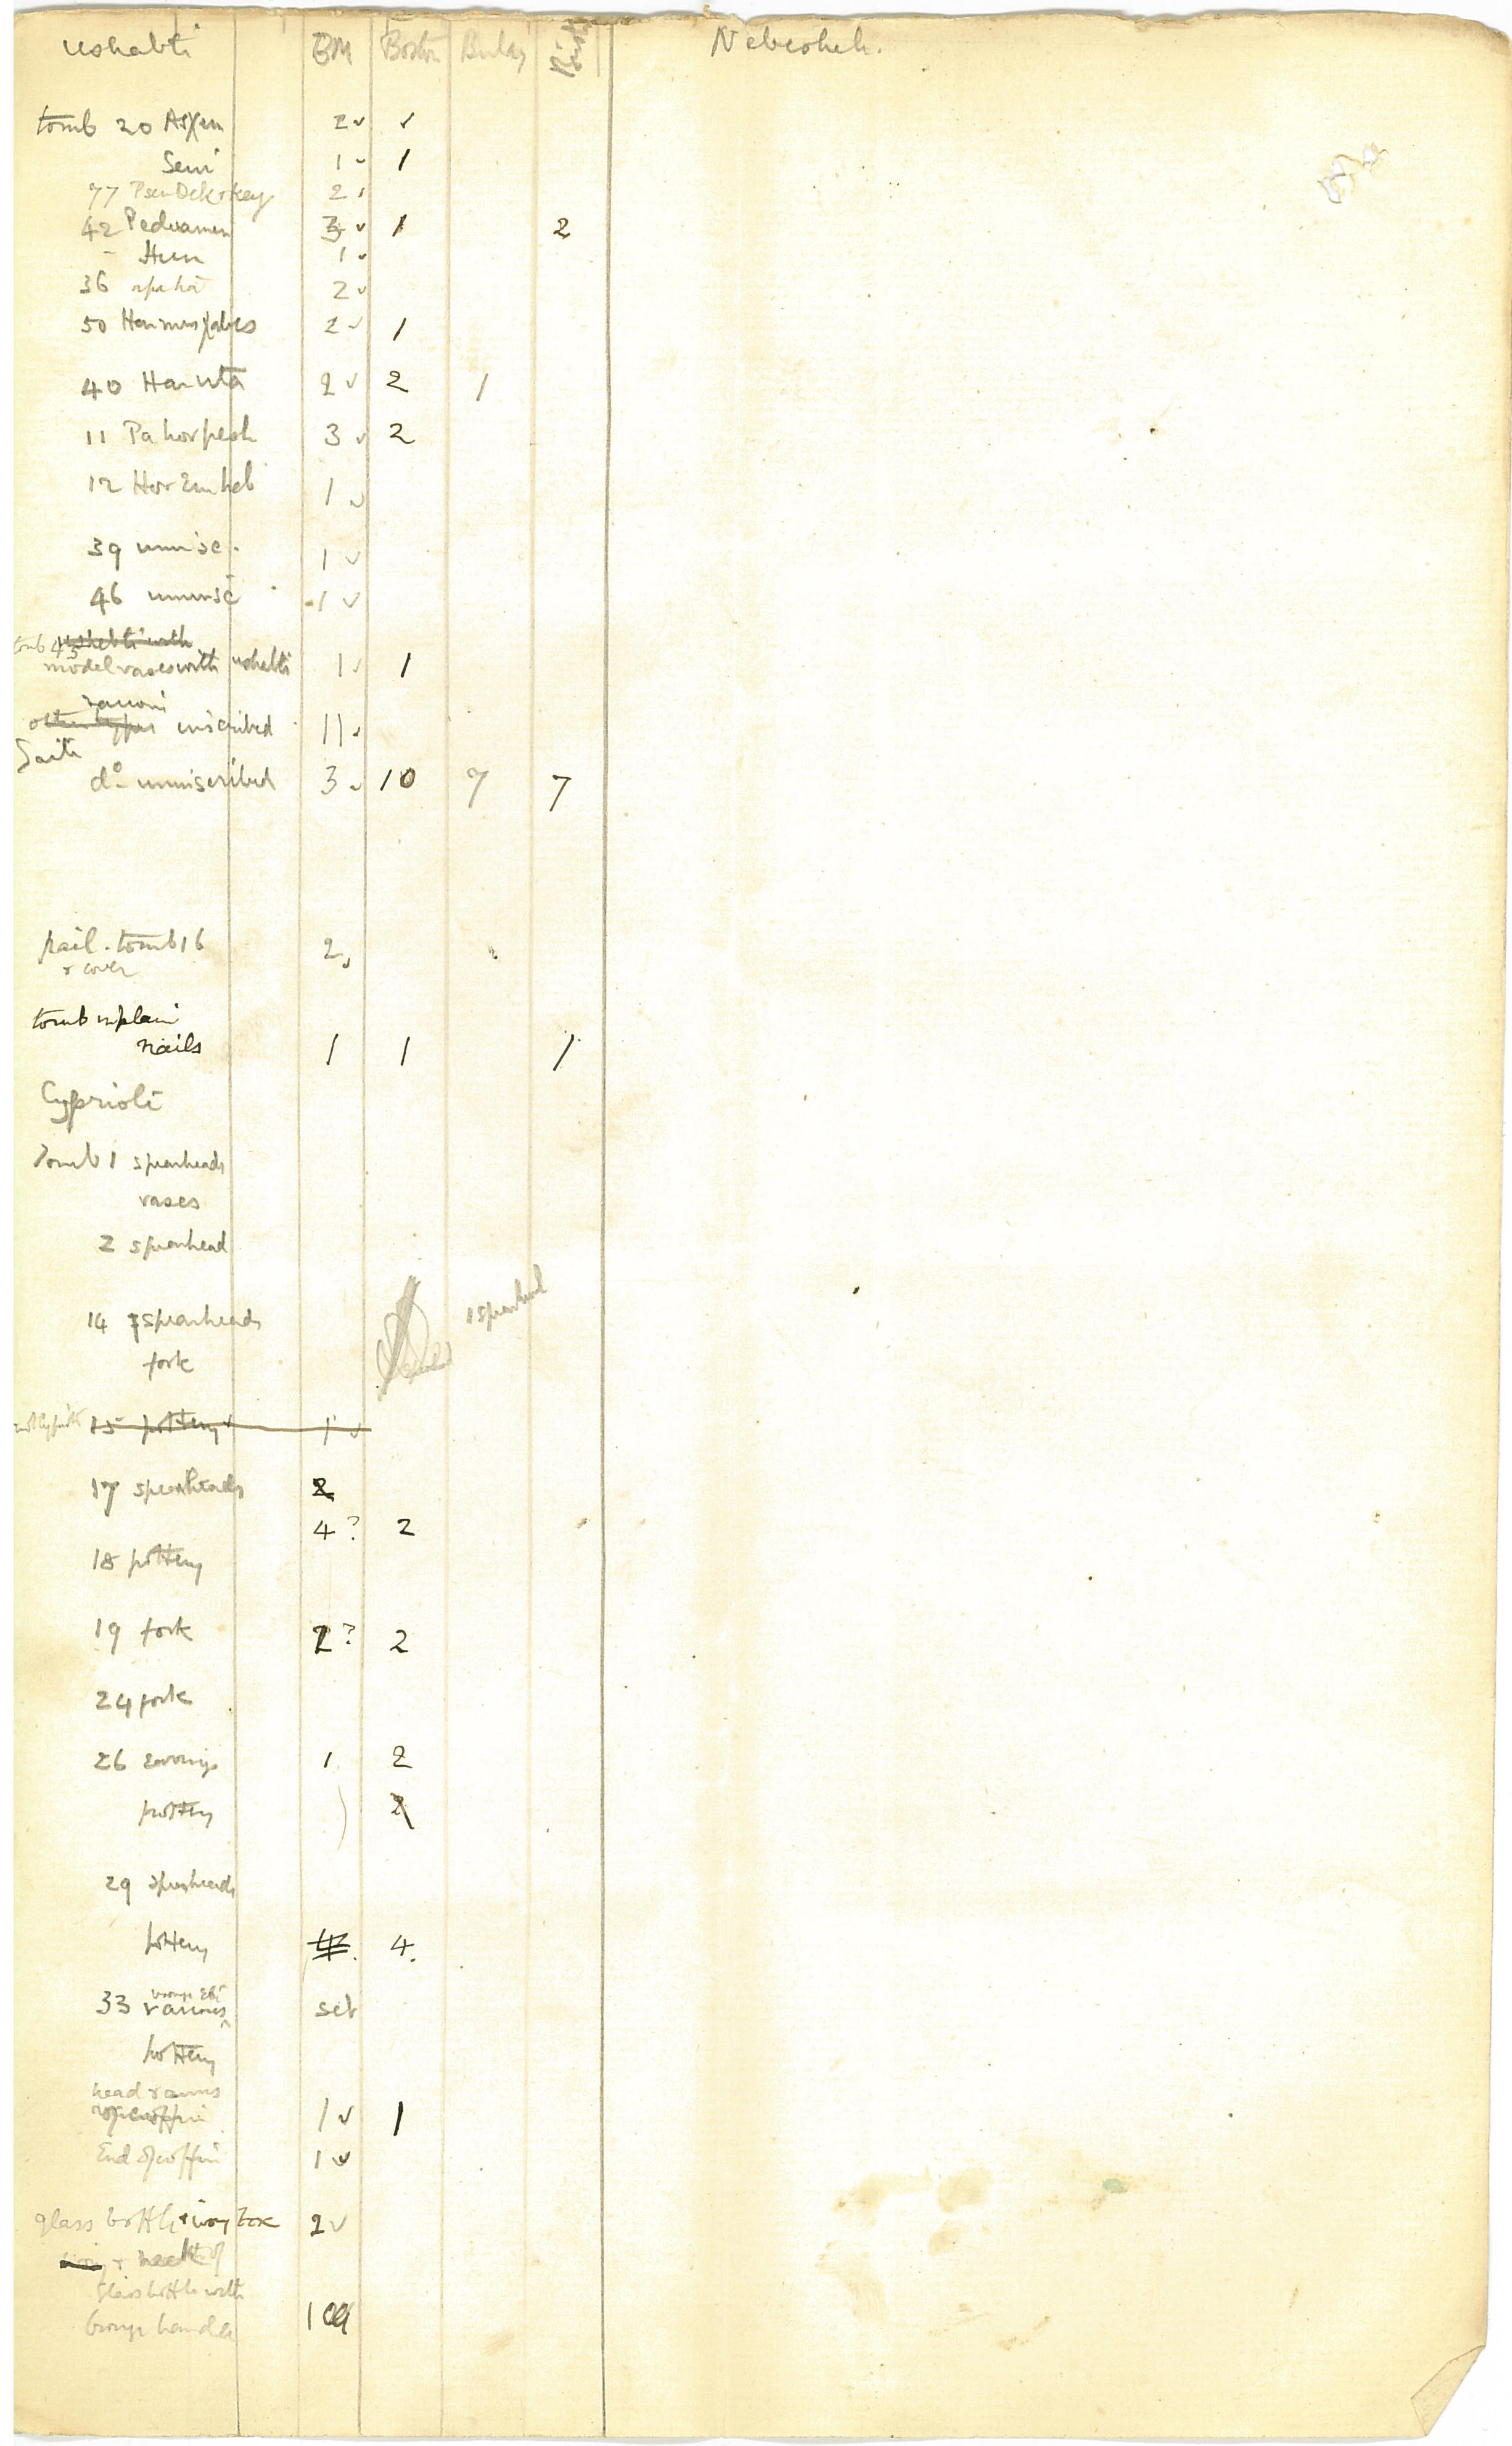 ushabti BM Boston Bulaq Nebesheh.
tomb 20 2 ✓ ✓
Seni 1 ✓ 1
77 2 ✓
42 Peduamen 3 ✓ 1 2
- Hun 1 ✓
36 2 ✓
50 2 ✓ 1
40 Haruta 2 ✓ 2 1
11 Pahorpesh 3 ✓ 2
12 Hor Em heb 1 ✓
39 uninsc. 1 ✓
46 uninsc 1 ✓
tomb 43 ushabti with
model vases with ushabti 1 ✓ 1
various
other types inscribed 11 ✓
Saite
do uninscribed 3 ✓ 10 7 7
pail. tomb 16 2 ✓
& cover
tomb in plain
nails 1 1 1
Cypriote
Tomb 1 spearheads
vases
2 spearhead
14 spearheads 1 spearhead
fork
15 pottery 1 ✓
17 spearheads 2
4? 2
18 pottery
19 fork 2? 2
24 fork
26 earrings 1 2
pottery 2
29 spearheads
pottery 4.
33 various set
pottery
head & arms
of coffin 1 ✓ 1
End of coffin 1 ✓
glass bottle & ivory box 2 ✓
& neck of
glass bottle with
bronze handle 1